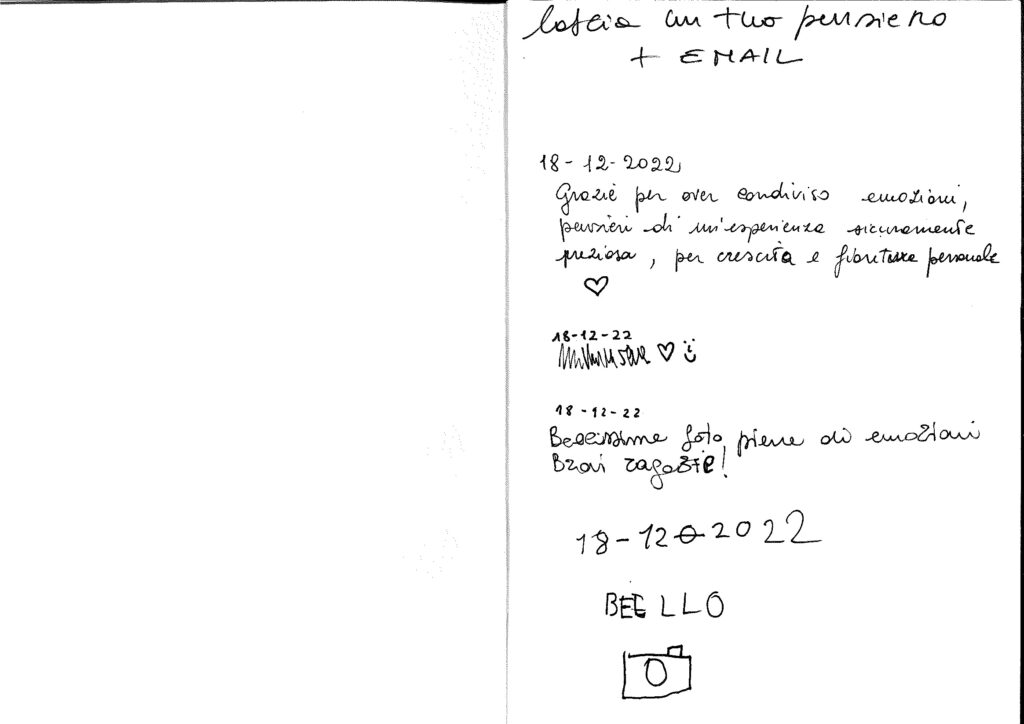 lascia un tuo pensiero
+ EMAIL
18-12-2022
Grazie per aver condiviso emozioni,
pensieri di un'esperienza sicuramente
preziosa, per crescita e personale
18-12-22
18-12-22
Bellissime foto, piene di emozioni
Bravi ragazzi e!
18-12-2022
BEELLO